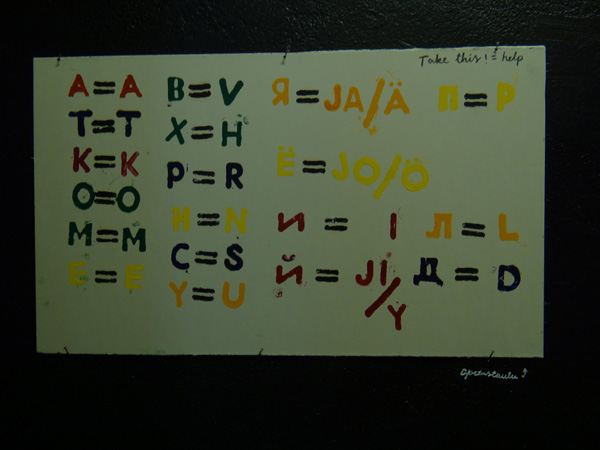 Take this! = help
A=A
T=T
K=K
O=O
M=M
E=E
B=V
X=H
P=R
H=N
C=S
Y=U
Я=JA/Ä
П=P
Ё=JO/Ö
И = I
Л=L
Й = JI/Y
Д = D